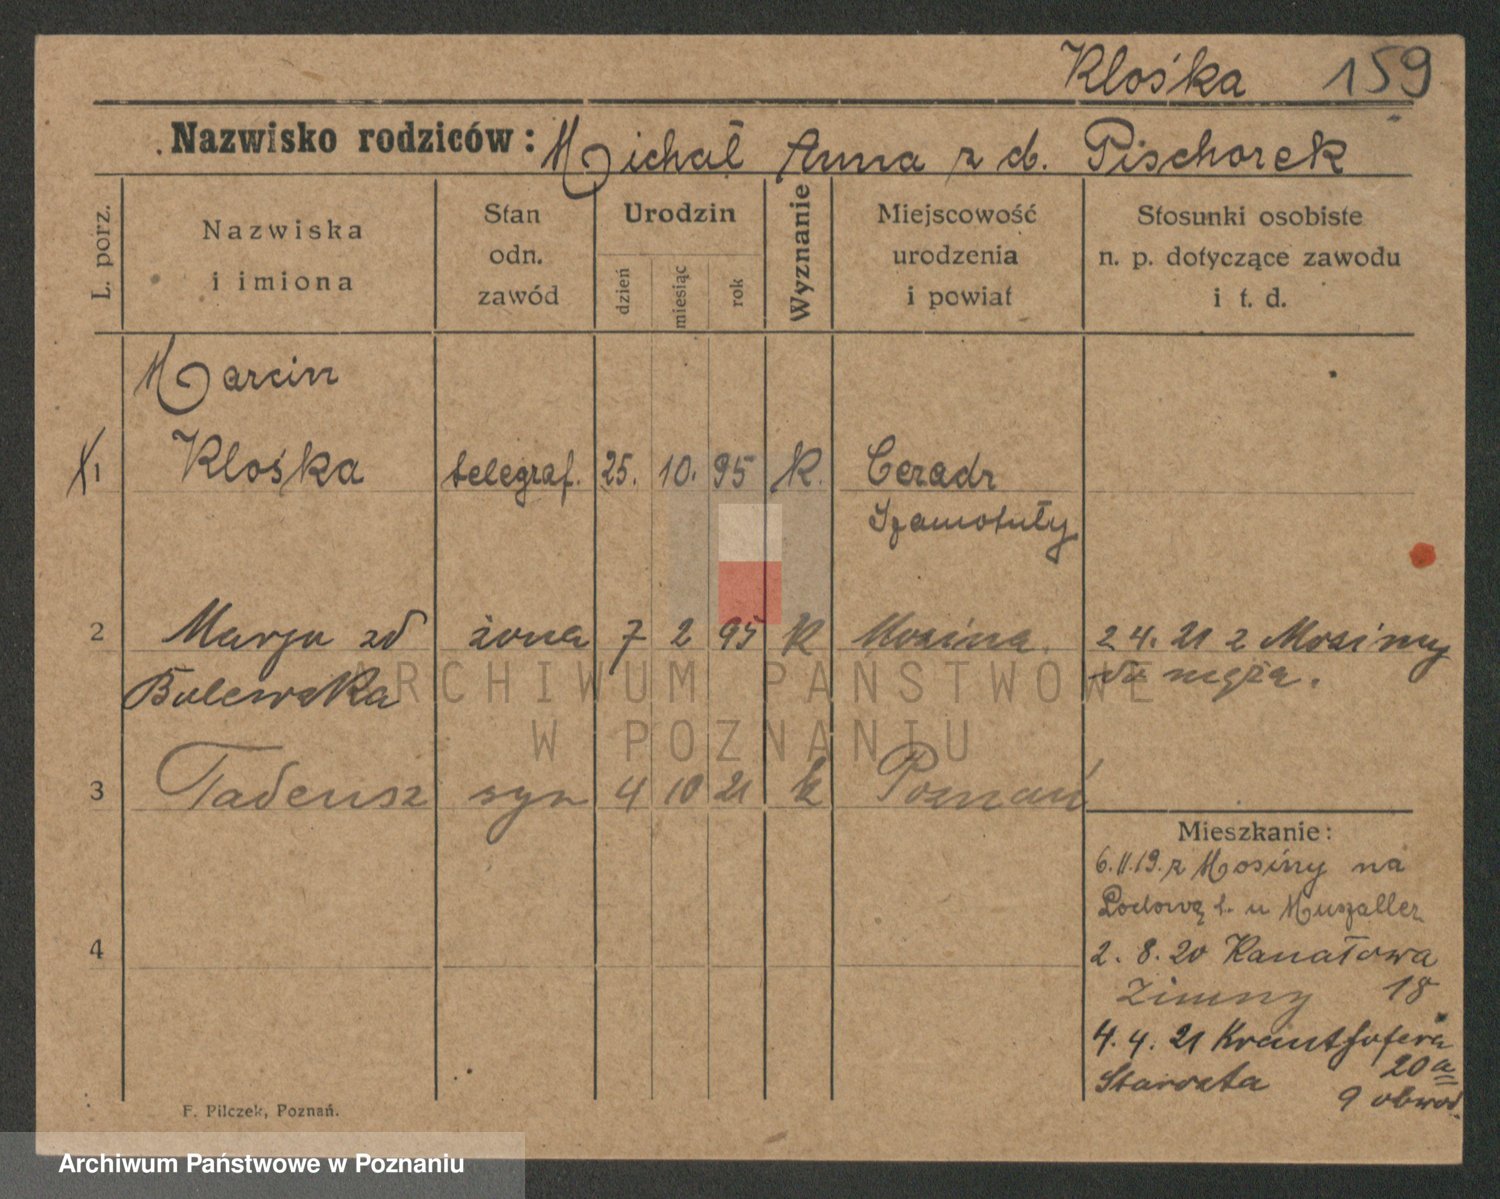 Klośka 159
Nazwisko rodziców: Michał Anna z d. Pischorek
L. porz.
Nazwiska
i imiona
Stan
odn.
zawód
Urodzin
dzień
miesiąc
rok
Wyznanie
Miejscowość
urodzenia
i powiat
Stosunki osobiste
n. p. dotyczące zawodu
i t. d.
Marcin
1 Klośka telegraf. 25. 10. 95 K. Ceradz
Szamotuły
2 Marja zd żona 7 2 95 K Mosina. 2 4. 21 z Mosiny
Bulewska do męża.
ARCHIWUM PAŃSTWOWE
W POZNANIU
3 Tadeusz syn 4 10 21 k Poznań
Mieszkanie:
6.11.19. z Mosiny na
u Muszaller
4
2. 8. 20 Kanałowa
Zimny 18
4. 4. 21 Krauthofera
Starosta 20a
9 obwod.
F. Pilczek, Poznań.
Archiwum Państwowe w Poznaniu